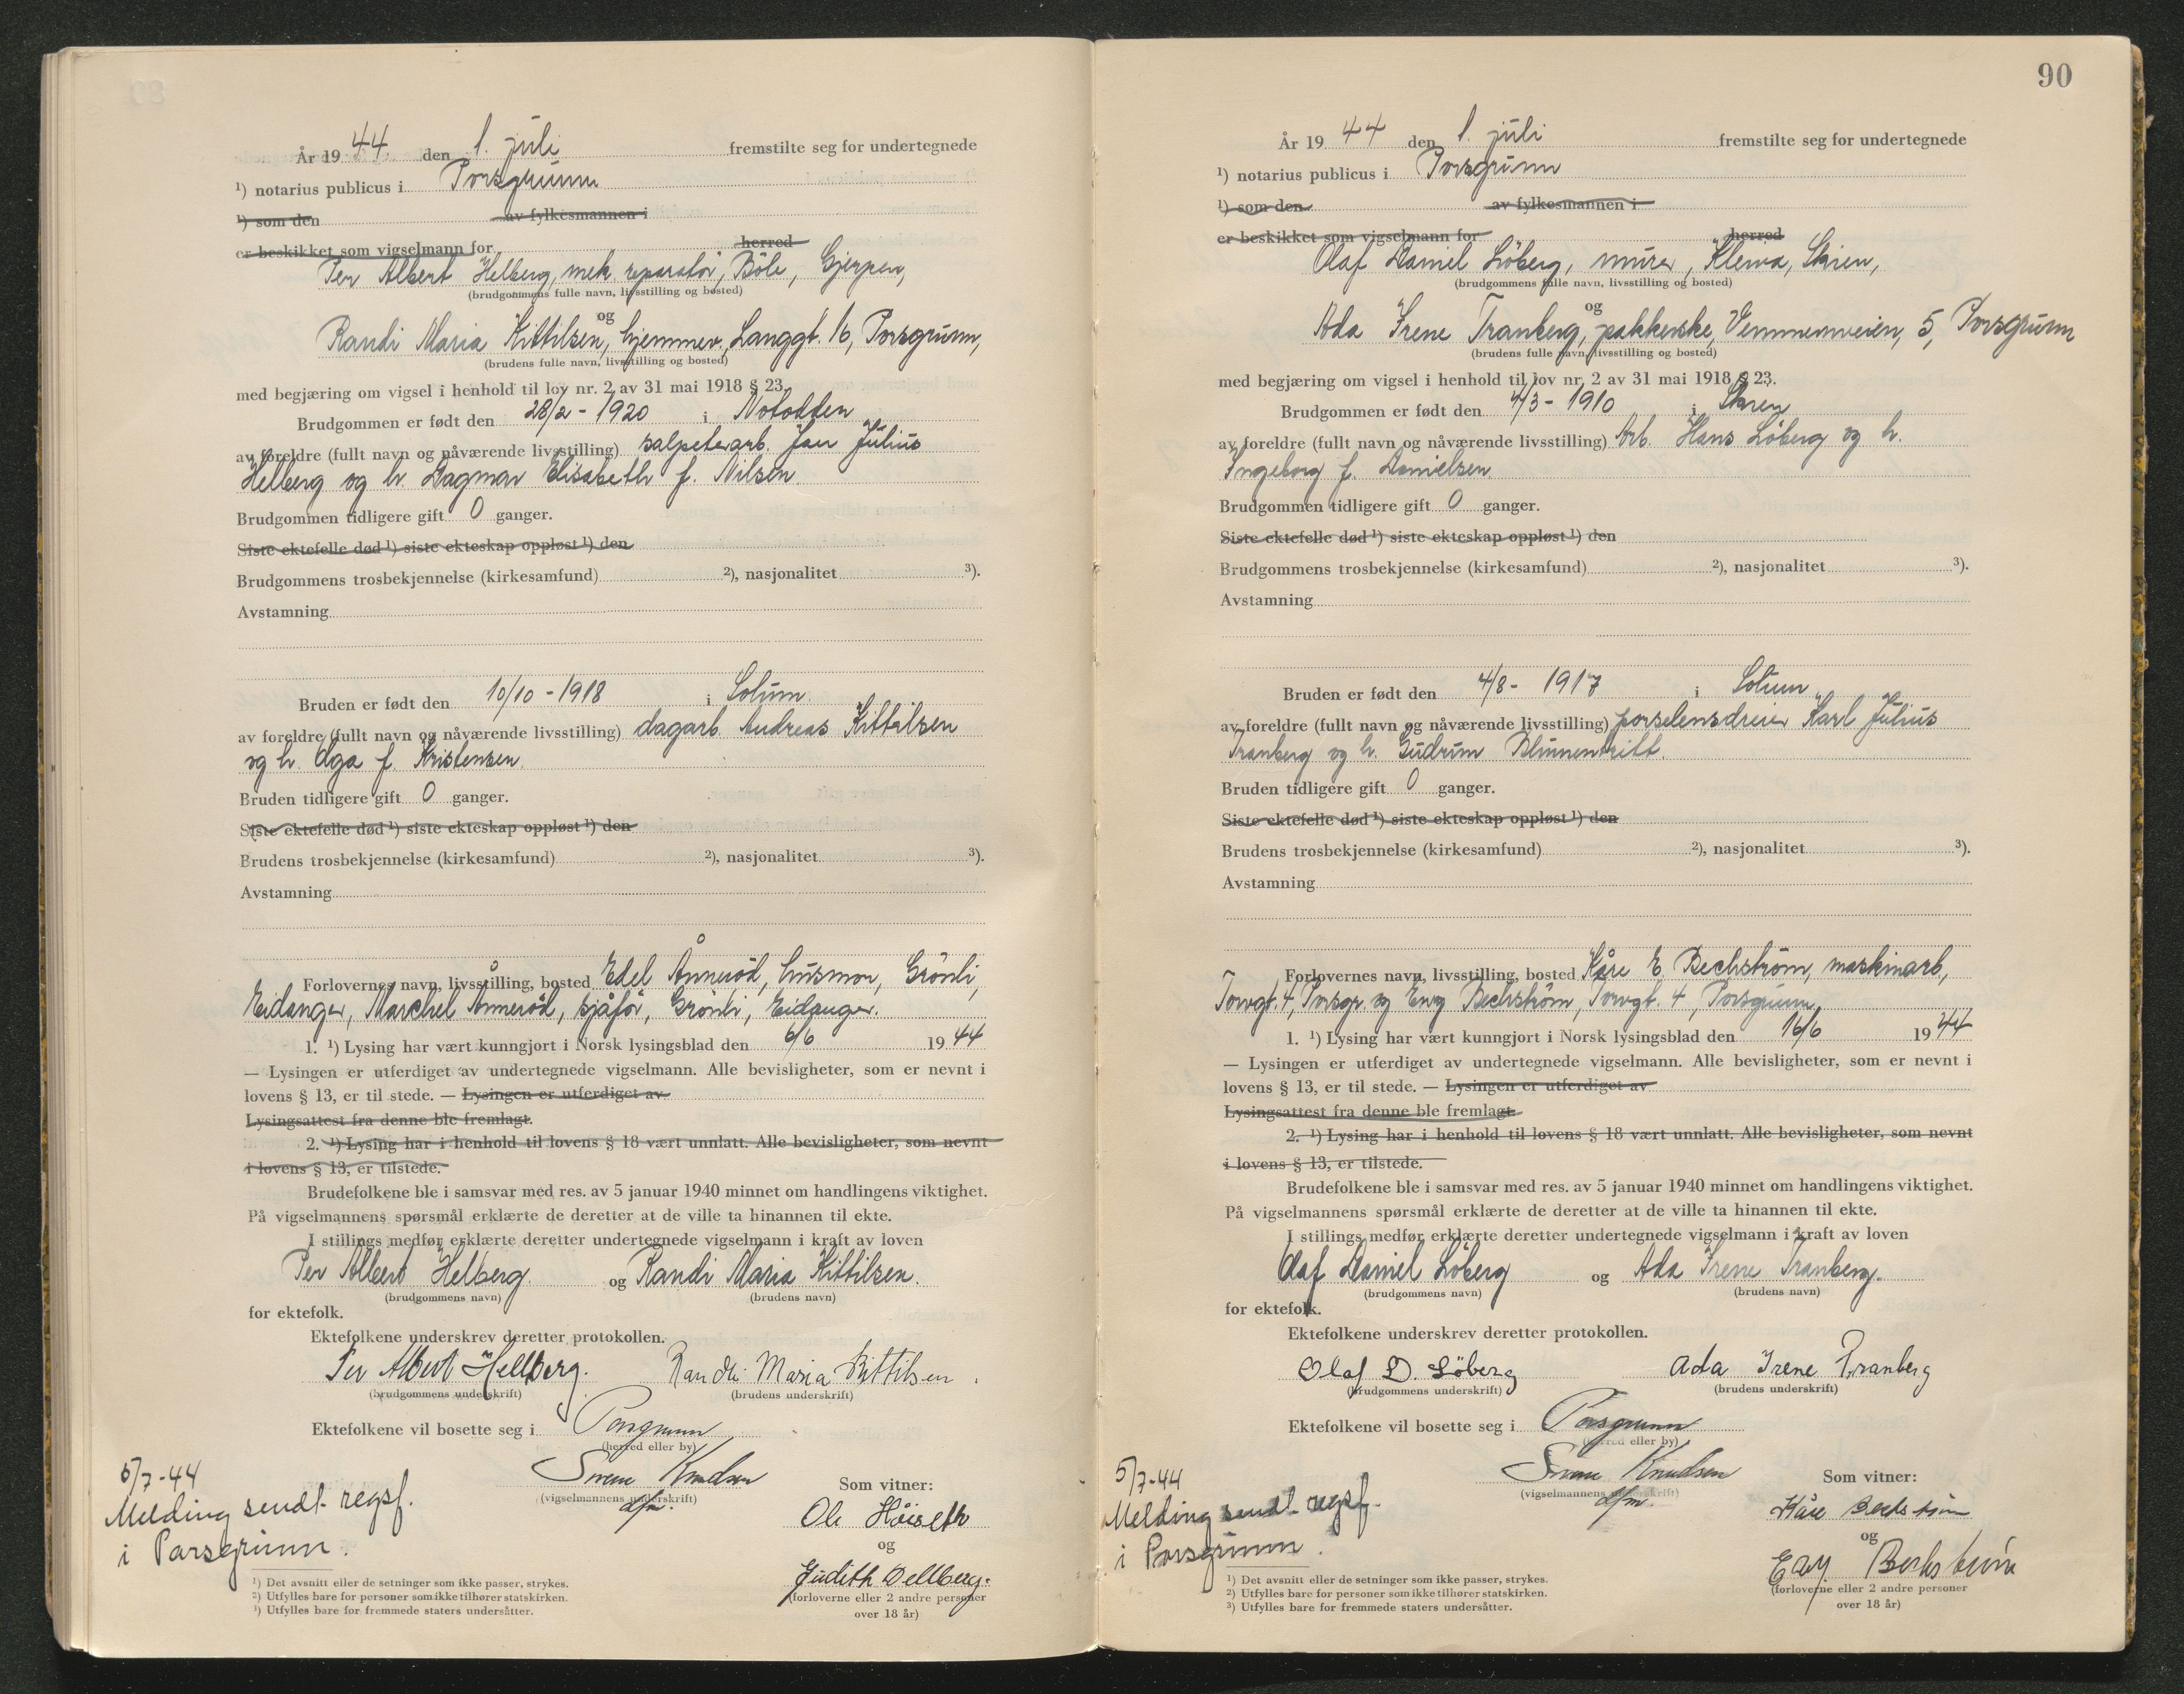 År 19 44. den 1. juli fremstilte seg for undertegnede
¹) notarius publicus i Porsgrunn
¹) som den av fylkesmannen i
er beskikket som vigselmann for herred
Per Albert Helberg, mek. reparatør, Böle, Gjerpen,
(brudgommens fulle navn, livsstilling og bosted)
og
Randi Maria Kittilsen, hjemmev. Langgt. 16, Porsgrunn,
(brudens fulle navn, livsstilling og bosted)
med begjæring om vigsel i henhold til lov nr. 2 av 31 mai 1918 § 23.
Brudgommen er født den 28/2 - 1920 i Notodden
av foreldre (fullt navn og nåværende livsstilling) salpeterarb. Jan Julius
Helberg og h. Dagmar Elisabeth f. Nilsen.
Brudgommen tidligere gift 0 ganger.
Siste ektefelle død ¹) siste ekteskap oppløst ¹) den
Brudgommens trosbekjennelse (kirkesamfund) ²), nasjonalitet ³).
Avstamning
Bruden er født den 10/10 - 1918 i Solum.
av foreldre (fullt navn og nåværende livsstilling) dagarb. Andreas Kittilsen
og h. Aga f. Kristensen.
Bruden tidligere gift 0 ganger.
Siste ektefelle død ¹) siste ekteskap oppløst ¹) den
Brudens trosbekjennelse (kirkesamfund) ²), nasjonalitet ³).
Avstamning
Forlovernes navn, livsstilling, bosted Edel Ånnerød, husmor, Grönli,
Eidanger, Marchel Ånnerød, sjåfør, Grönli, Eidanger.
1. ¹) Lysing har vært kunngjort i Norsk lysingsblad den 6/6 19 44
— Lysingen er utferdiget av undertegnede vigselmann. Alle bevisligheter, som er nevnt i
lovens § 13, er til stede. — Lysingen er utferdiget av
Lysingsattest fra denne ble fremlagt.
2. ¹) Lysing har i henhold til lovens § 18 vært unnlatt. Alle bevisligheter, som nevnt
i lovens § 13, er tilstede.
Brudefolkene ble i samsvar med res. av 5 januar 1940 minnet om handlingens viktighet.
På vigselmannens spørsmål erklærte de deretter at de ville ta hinannen til ekte.
I stillings medfør erklærte deretter undertegnede vigselmann i kraft av loven
Per Albert Helberg. og Randi Maria Kittilsen.
(brudgommens navn) (brudens navn)
for ektefolk.
Ektefolkene underskrev deretter protokollen.
Per Albert Hellberg. Randi Maria Kittilsen.
(brudgommens underskrift) (brudens underskrift)
Ektefolkene vil bosette seg i Porsgrunn
(herred eller by)
Knudsen
(vigselmannens underskrift)
dfm.
Som vitner:
Ole Höiseth
og
Judith Dellberg.
(forloverne eller 2 andre personer
over 18 år)
5/7-44
Melding sendt regsf.
i Porsgrunn.
¹) Det avsnitt eller de setninger som ikke passer, strykes.
²) Utfylles bare for personer som ikke tilhører statskirken.
³) Utfylles bare for fremmede staters undersåtter.
90
År 19 44 den 1. juli fremstilte seg for undertegnede
¹) notarius publicus i Porsgrunn
¹) som den av fylkesmannen i
er beskikket som vigselmann for herred
Olaf Daniel Löberg, murer, Klevia, Skien,
(brudgommens fulle navn, livsstilling og bosted)
og
Ada Irene Tranberg, pakkerske, Vemmenveien, 5, Porsgrunn
(brudens fulle navn, livsstilling og bosted)
med begjæring om vigsel i henhold til lov nr. 2 av 31 mai 1918 § 23.
Brudgommen er født den 4/3 - 1910 i Skien
av foreldre (fullt navn og nåværende livsstilling) Arb. Hans Löberg og h.
Ingeborg f. Danielsen.
Brudgommen tidligere gift 0 ganger.
Siste ektefelle død ¹) siste ekteskap oppløst ¹) den
Brudgommens trosbekjennelse (kirkesamfund) ²), nasjonalitet ³).
Avstamning
Bruden er født den 4/8 - 1917 i Solum
av foreldre (fullt navn og nåværende livsstilling) porselensdreier Karl Julius
Tranberg og h. Gudrun Blumentritt.
Bruden tidligere gift 0 ganger.
Siste ektefelle død ¹) siste ekteskap oppløst ¹) den
Brudens trosbekjennelse (kirkesamfund) ²), nasjonalitet ³).
Avstamning
Forlovernes navn, livsstilling, bosted Kåre E. Bechström, maskinarb,
Torvgt. 4, Porsgr. og Eny Bechström, Torvgt. 4, Porsgrunn
1. ¹) Lysing har vært kunngjort i Norsk lysingsblad den 16/6 19 44
— Lysingen er utferdiget av undertegnede vigselmann. Alle bevisligheter, som er nevnt i
lovens § 13, er til stede. — Lysingen er utferdiget av
Lysingsattest fra denne ble fremlagt.
2. ¹) Lysing har i henhold til lovens § 18 vært unnlatt. Alle bevisligheter, som nevnt
i lovens § 13, er tilstede.
Brudefolkene ble i samsvar med res. av 5 januar 1940 minnet om handlingens viktighet.
På vigselmannens spørsmål erklærte de deretter at de ville ta hinannen til ekte.
I stillings medfør erklærte deretter undertegnede vigselmann i kraft av loven
Olaf Daniel Löberg og Ada Irene Tranberg.
(brudgommens navn) (brudens navn)
for ektefolk.
Ektefolkene underskrev deretter protokollen.
Olaf D. Löberg Ada Irene Tranberg
(brudgommens underskrift) (brudens underskrift)
Ektefolkene vil bosette seg i Porsgrunn
(herred eller by)
Knudsen
(vigselmannens underskrift)
dfm.
Som vitner:
Kåre Bechström
og
Eny Bechström
(forloverne eller 2 andre personer
over 18 år)
5/7-44
Melding sendt regsf.
i Porsgrunn.
¹) Det avsnitt eller de setninger som ikke passer, strykes.
²) Utfylles bare for personer som ikke tilhører statskirken.
³) Utfylles bare for fremmede staters undersåtter.